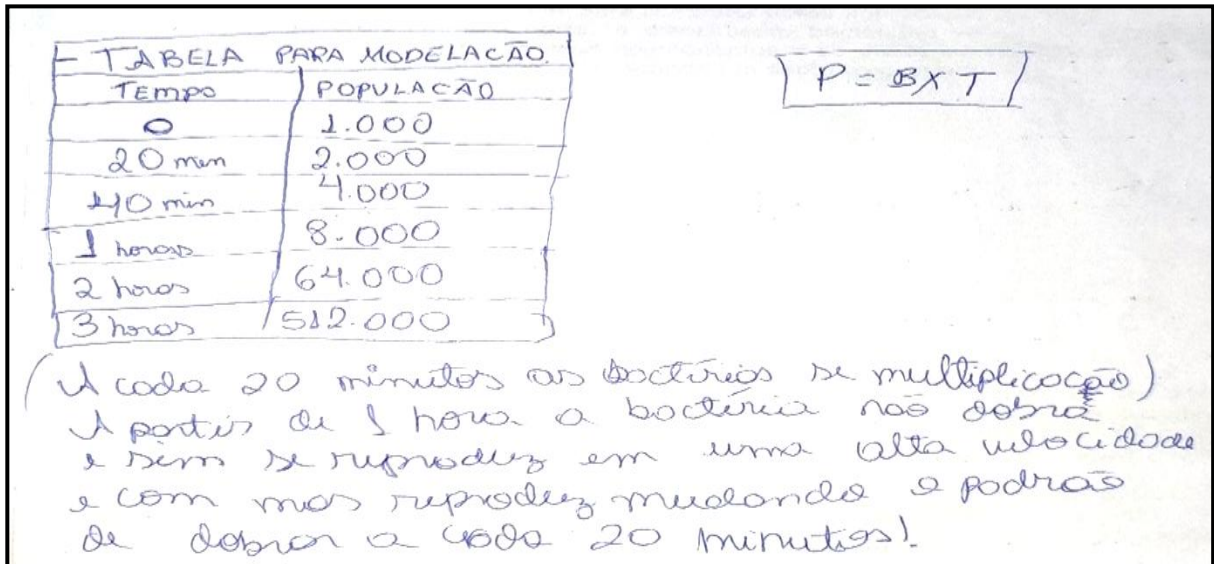 TABELA PARA MODELAÇÃO.
TEMPO POPULAÇÃO
0 1.000
20 min 2.000
40 min 4.000
1 horas 8.000
2 horas 64.000
3 horas 512.000
P = B X T
(A cada 20 minutos as bactérias se multiplicação)
A partir de 1 hora a bactéria não dobra
e sim se reproduz em uma alta velocidade
e com mas reproduz mudando o padrão
de dobrar a cada 20 minutos!